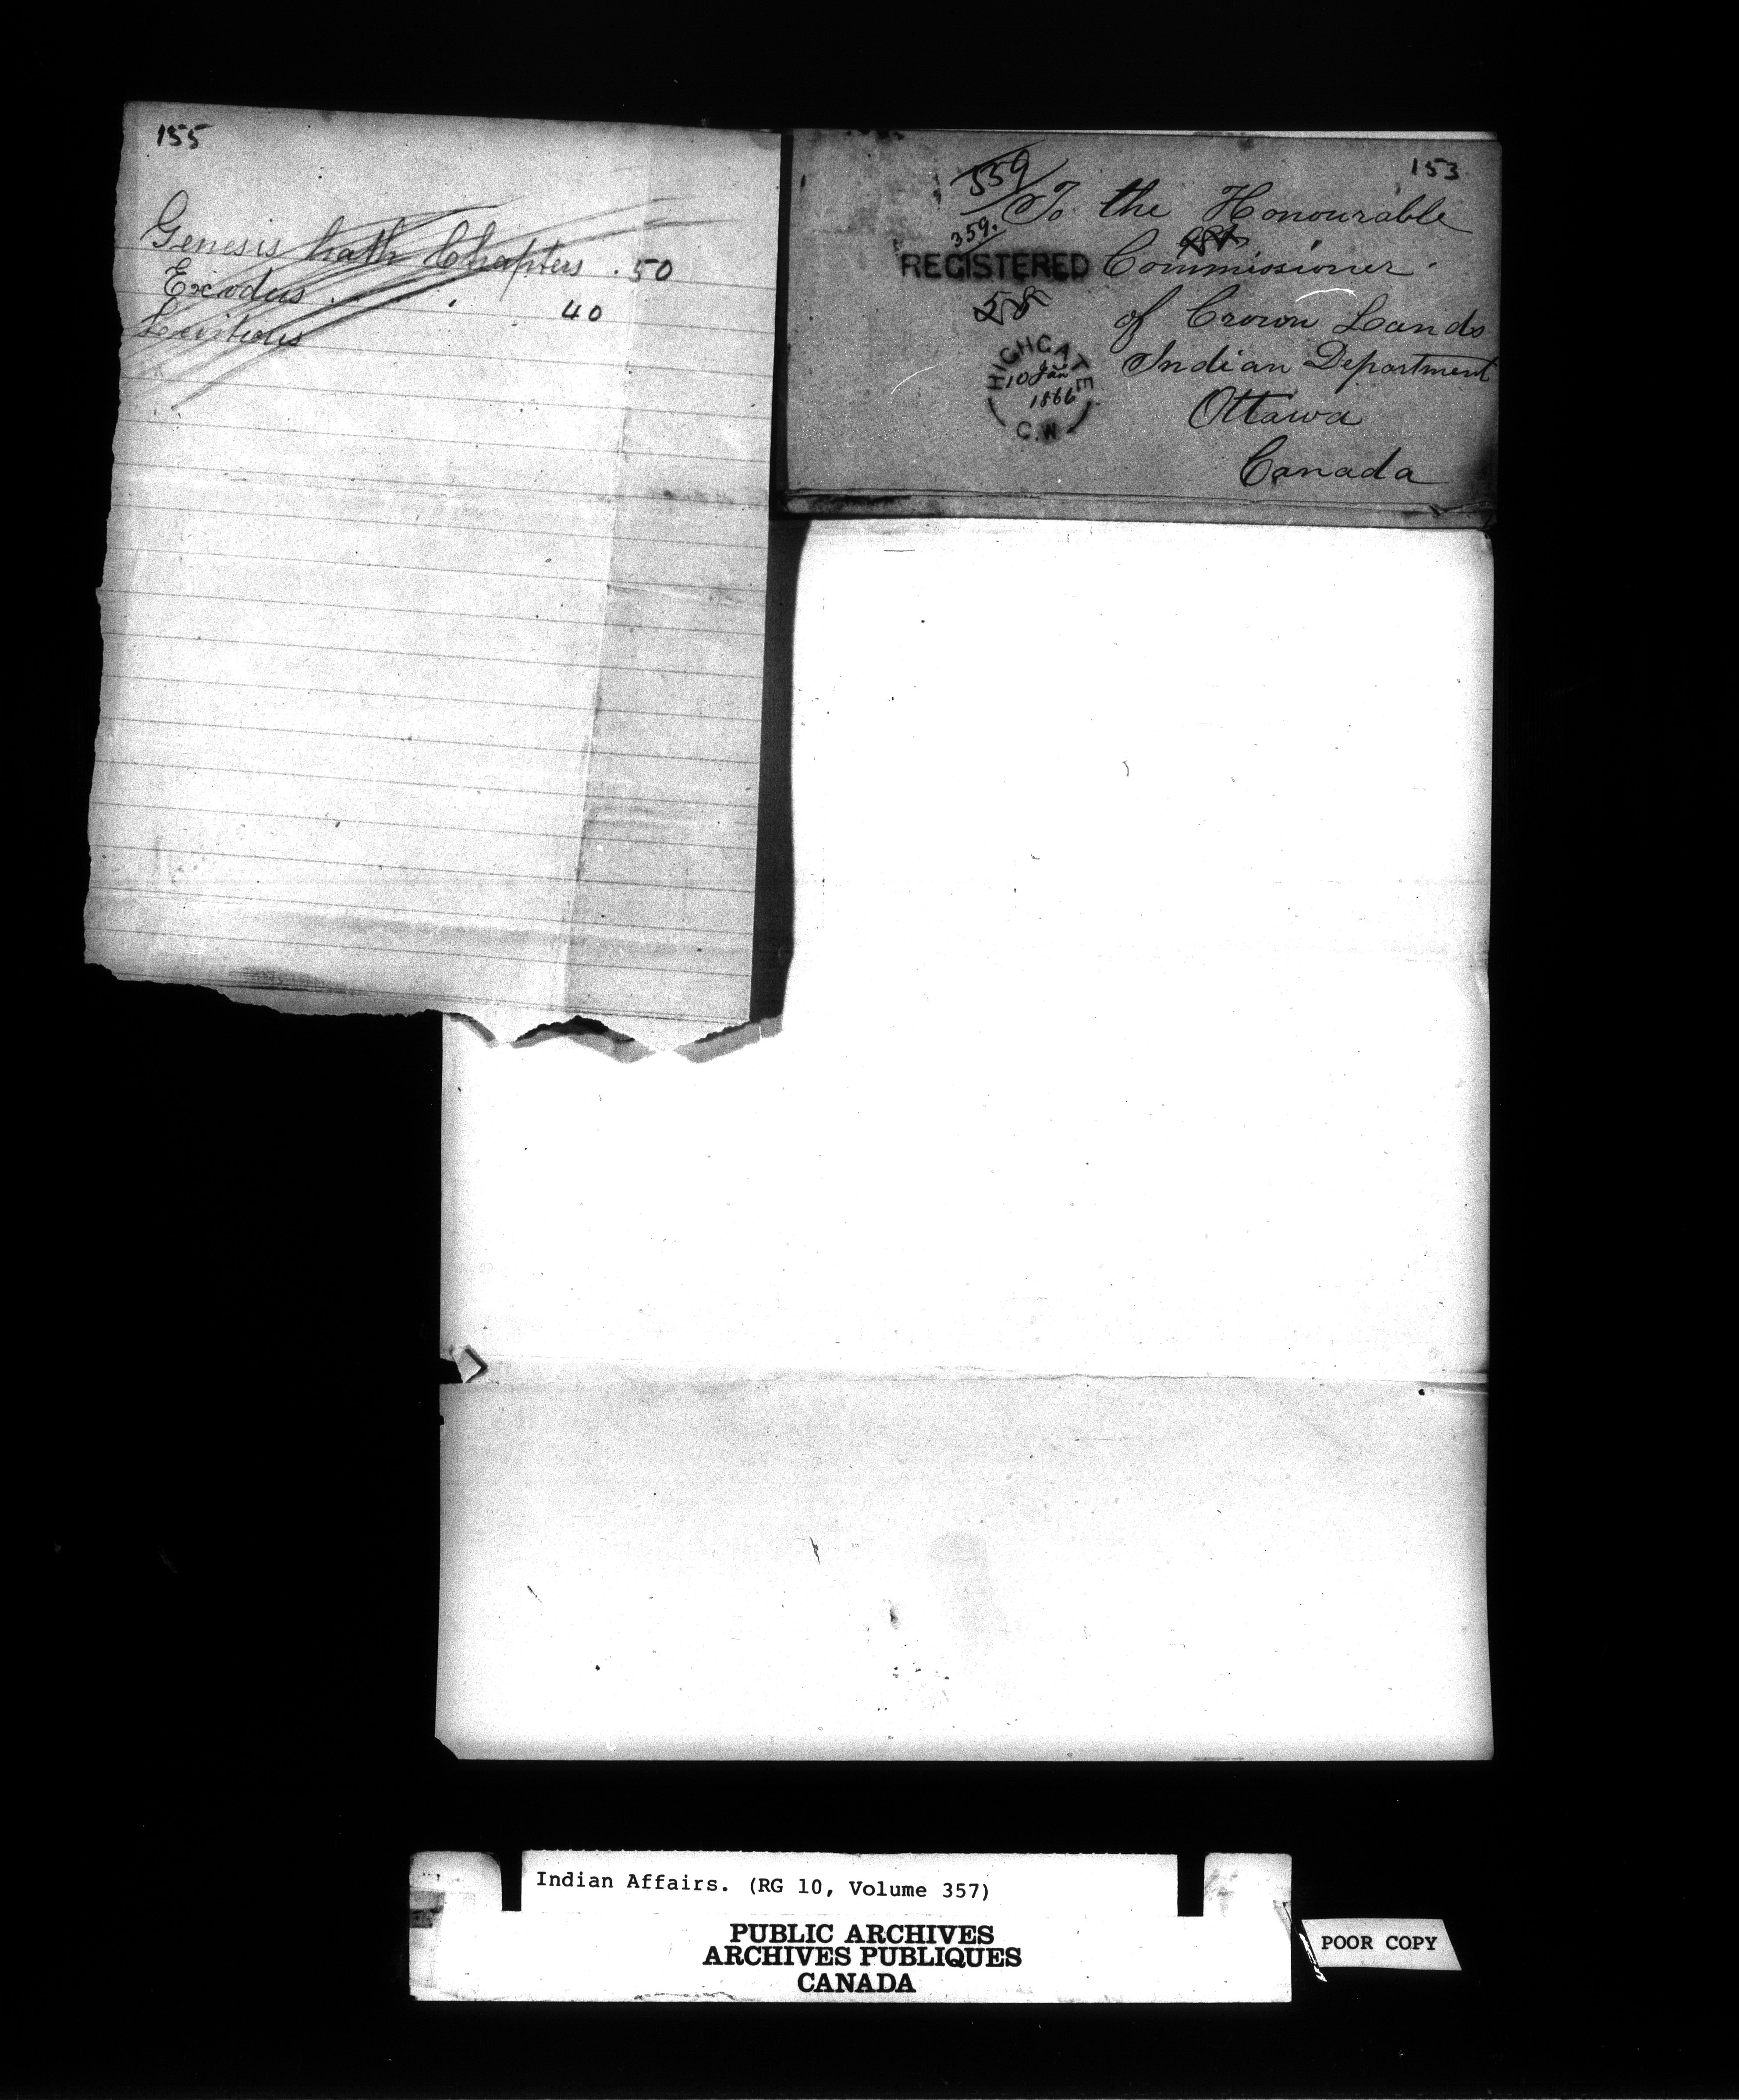 155
Genesis hath Chapters . 50
Exodus . . 40
Leviticus
153
359
To the Honourable
359.
REGISTERED
Commissioner
58
of Crown Lands
HIGHGATE
10 Jan
1866
C.W
Indian Department
Ottawa
Canada
Indian Affairs. (RG 10, Volume 357)
PUBLIC ARCHIVES
ARCHIVES PUBLIQUES
CANADA
POOR COPY